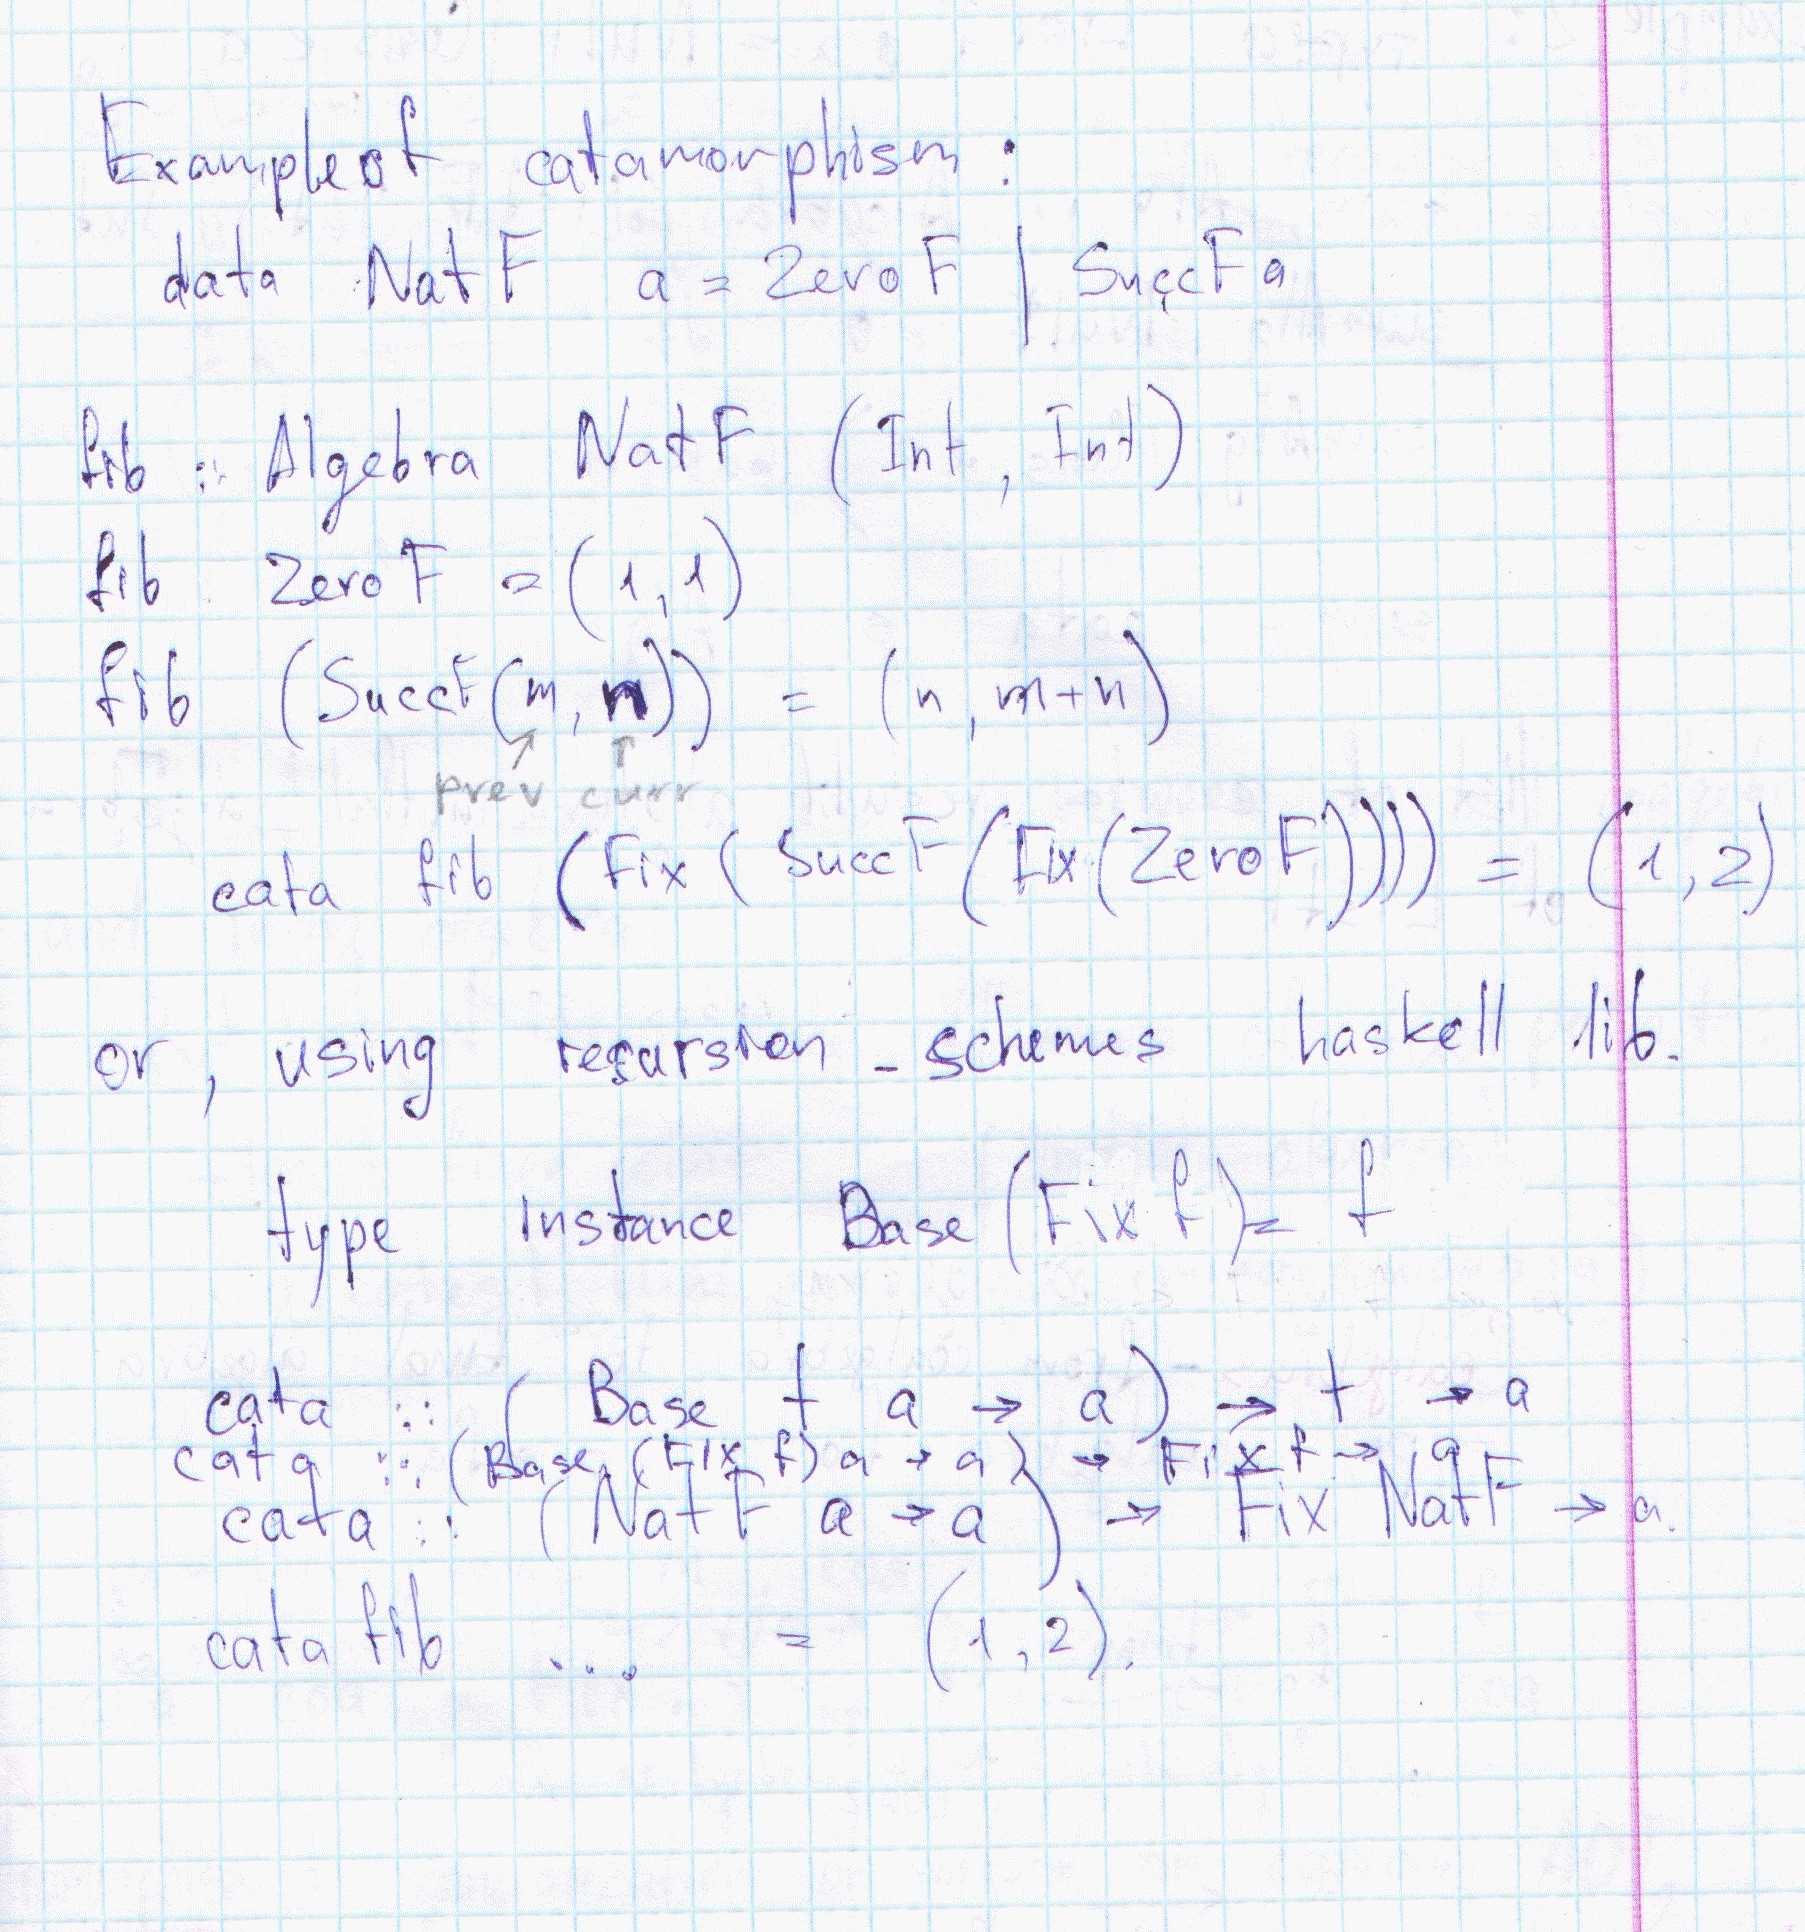 Example of catamorphism:
data NatF a = ZeroF | SuccF a
fib :: Algebra NatF (Int, Int)
fib ZeroF = (1,1)
fib (SuccF(m, n)) = (n, m+n)
prev curr
cata fib (Fix (SuccF (Fix (ZeroF)))) = (1,2)
or, using recursion-schemes haskell lib.
type instance Base (Fix f) = f
cata :: (Base t a → a) → t → a
cata :: (Base (Fix f) a → a) → Fix f → a
cata :: (NatF a → a) → Fix NatF → a.
cata fib ... = (1,2).